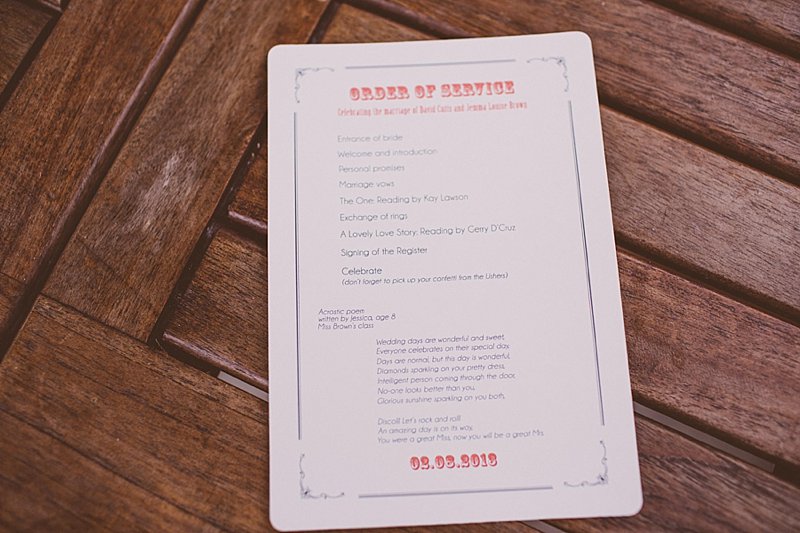 ORDER OF SERVICE
Celebrating the marriage of David Cutts and Jemma Louise Brown
Entrance of bride
Welcome and introduction
Personal promises
Marriage vows
The One: Reading by Kay Lawson
Exchange of rings
A Lovely Love Story: Reading by Gerry D'Cruz
Signing of the Register
Celebrate
(don't forget to pick up your confetti from the Ushers)
Acrostic poem
written by Jessica, age 8
Miss Brown's class
Wedding days are wonderful and sweet,
Everyone celebrates on their special day,
Days are normal, but this day is wonderful,
Diamonds sparkling on your pretty dress,
Intelligent person coming through the door,
No-one looks better than you,
Glorious sunshine sparkling on you both,
Disco!!! Let's rock and roll!
An amazing day is on its way,
You were a great Miss, now you will be a great Mrs.
02.03.2013